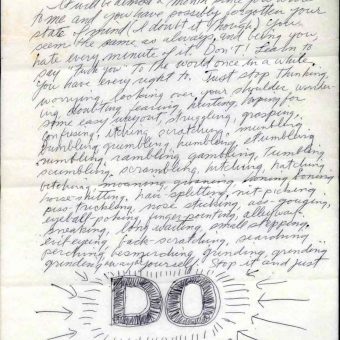 It will be almost a month since you wrote
to me and you have possibly forgotten your
state of mind (I doubt it though). You
seem the same as always, and being you,
hate every minute of it. Don't! Learn to
say "Fuck You" to the world once in a while.
You have every right to. Just stop thinking,
worrying, looking over your shoulder, wonder-
ing, doubting, fearing, hurting, hoping for
some easy way out, struggling, grasping,
confusing, itching, scratching, mumbling,
bumbling, grumbling, humbling, stumbling,
numbling, rambling, gambling, tumbling,
scumbling, scrambling, hitching, hatching,
bitching, moaning, groaning, honing, boning,
horse-shitting, hair-splitting, nit-picking,
piss-trickling, nose sticking, ass-gouging,
eyeball-poking, finger-pointing, alleyway-
sneaking, long waiting, small stepping,
evil-eyeing, back-scratching, searching,
perching, besmirching, grinding, grinding,
grinding away at yourself. Stop it and just
DO